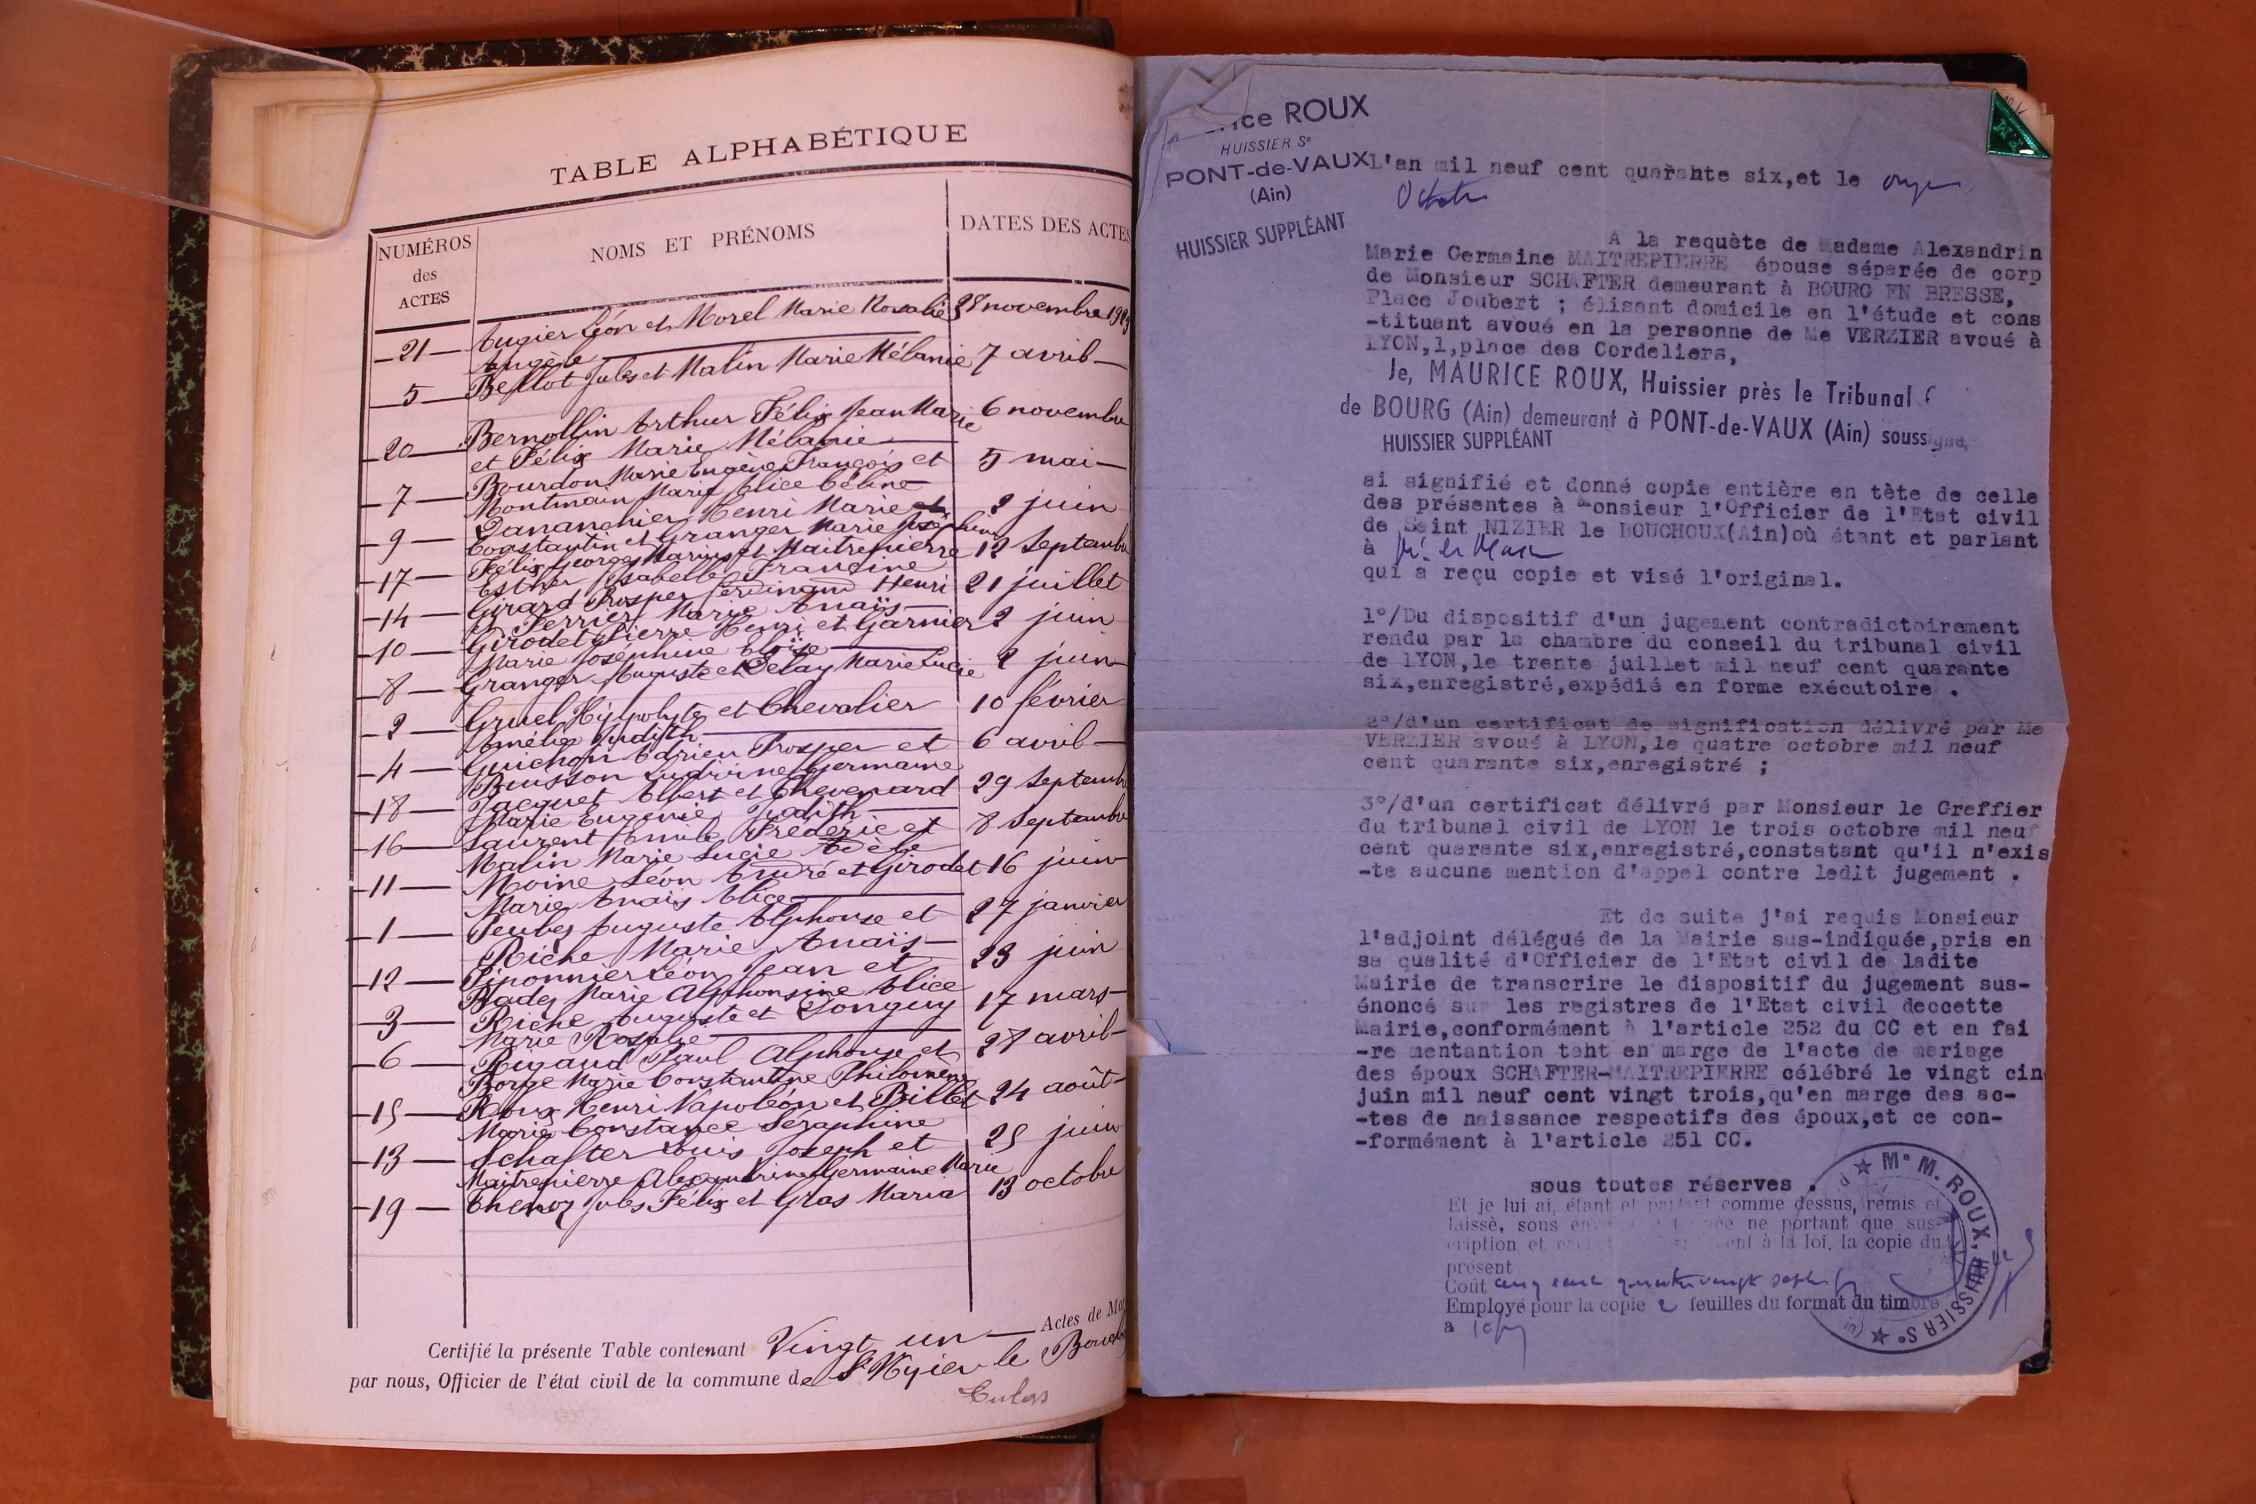 TABLE ALPHABÉTIQUE
NUMÉROS des ACTES
NOMS ET PRÉNOMS
DATES DES ACTES
21 Augier Léon et Morel Marie Rosalie 28 novembre
Angèle
5 Bellot Jules et Malin Marie Mélanie 7 avril
20 Bernollin Arthur Félix Jean Marie 6 novembre
et Félix Marie Mélanie
7 Bourdon Marie Eugène François et 5 mai
Montmain Marie Alice Céline
9 Dananchier Henri Marie et 2 juin
Constantin et Granger Marie Joséphine
17 Félix Georges Marius et Maitrepierre 12 Septembre
Esther Isabelle Francine
14 Girard Prosper Ferdinand Henri 21 juillet
et Perrier Marie Anaïs
10 Girodet Pierre Henri et Garnier 2 juin
Marie Joséphine Eloïse
8 Granger Auguste et Delay Marie Lucie 2 juin
2 Gruel Hippolyte et Chevalier 10 février
Amélie Judith
4 Guichon Adrien Prosper et 6 avril
Buisson Ludivine Germaine
18 Jacquet Albert et Thevenard 29 Septembre
Marie Eugénie Judith
16 Laurent Emile Frédéric et 8 Septembre
Malin Marie Lucie Adèle
11 Moine Léon André et Girodet 16 juin
Marie Anaïs Alice
1 Peubey Auguste Alphonse et 27 janvier
Riche Marie Anaïs
12 Piponnier Léon Jean et 23 juin
Badey Marie Alphonsine Alice
3 Riche Auguste et Longuy 17 mars
Marie Rosalie
6 Rigaud Paul Alphonse et 28 avril
Borge Marie Constantine Philomène
15 Roux Henri Napoléon et Billet 24 août
Marie Constance Séraphine
13 Schafter Louis Joseph et 25 juin
Maitrepierre Alexandrine Germaine Marie
19 Thenoz Jules Félix et Gras Maria 13 octobre
Certifié la présente Table contenant Vingt un Actes de
par nous, Officier de l'état civil de la commune de St Nizier le
ROUX
HUISSIER Sᵉ
PONT-de-VAUX
(Ain)
HUISSIER SUPPLÉANT
L'an mil neuf cent quarante six,et le onze
Octobre
A la requète de Madame Alexandrin
Marie Germaine MAITREPIERRE épouse séparée de corp
de Monsieur SCHAFTER demeurant à BOURG EN BRESSE,
Place Joubert ; élisant domicile en l'étude et cons
-tituant avoué en la personne de Me VERZIER avoué à
LYON,1,place des Cordeliers,
Je, MAURICE ROUX, Huissier près le Tribunal
de BOURG (Ain) demeurant à PONT-de-VAUX (Ain) soussigné,
HUISSIER SUPPLÉANT
ai signifié et donné copie entière en tète de celle
des présentes à Monsieur l'Officier de l'Etat civil
de Saint NIZIER le BOUCHOUX(Ain)où étant et parlant
à
qui a reçu copie et visé l'original.
1°/Du dispositif d'un jugement contradictoirement
rendu par la chambre du conseil du tribunal civil
de LYON,le trente juillet mil neuf cent quarante
six,enregistré,expédié en forme exécutoire .
2°/d'un certificat de signification délivré par Me
VERZIER avoué à LYON,le quatre octobre mil neuf
cent quarante six,enregistré ;
3°/d'un certificat délivré par Monsieur le Greffier
du tribunal civil de LYON le trois octobre mil neuf
cent quarante six,enregistré,constatant qu'il n'exis
-te aucune mention d'appel contre ledit jugement .
Et de suite j'ai requis Monsieur
l'adjoint délégué de la Mairie sus-indiquée,pris en
sa qualité d'Officier de l'Etat civil de ladite
Mairie de transcrire le dispositif du jugement sus-
énoncé sur les registres de l'Etat civil deccette
Mairie,conformément à l'article 252 du CC et en fai
-re mentantion taht en marge de l'acte de mariage
des époux SCHAFTER-MAITREPIERRE célébré le vingt cin
juin mil neuf cent vingt trois,qu'en marge des ac-
-tes de naissance respectifs des époux,et ce con-
-formément à l'article 251 CC.
sous toutes réserves .
Et je lui ai, étant et parlant comme dessus, remis et
laissè, sous ne portant que sus-
cription et à la loi, la copie du
présent
Coût cinq cent quatre vingt sept
Employé pour la copie 2 feuilles du format du timbre
a
Mᵉ M. ROUX, HUISSIER Sᵉ